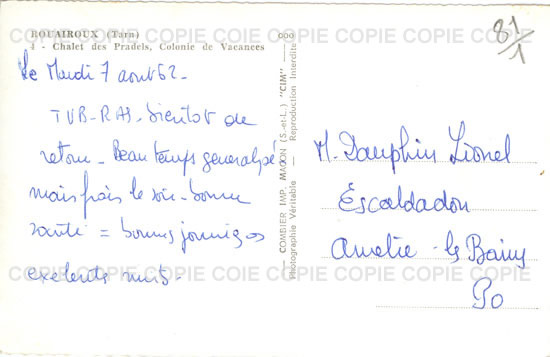 ROUAIROUX (Tarn)
4 - Chalet des Pradels, Colonie de Vacances
81/1
Le Mardi 7 aout 62 -
TVB - RAS - bientot de
retour - Beau temps generalisé
mais frais le soir - bonne
santé = bonnes journées
exelentes nuits -
COMBIER IMP. MACON (S.-et-L.) "CIM"
Photographie Véritable — Reproduction Interdite
M. Dauphin Lionel
Escaldadou
Amelie-les Bains
PO
COPIE COPIE COPIE COPIE COPIE COPIE COPIE
COPIE COPIE COPIE COIE COPIE COPIE COPIE COPIE